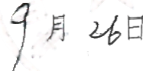 9月26日